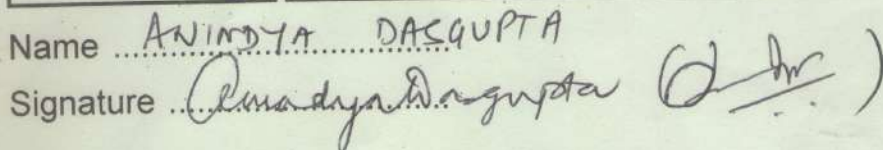 Name ANINDYA DASGUPTA
Signature Anindya Dasgupta